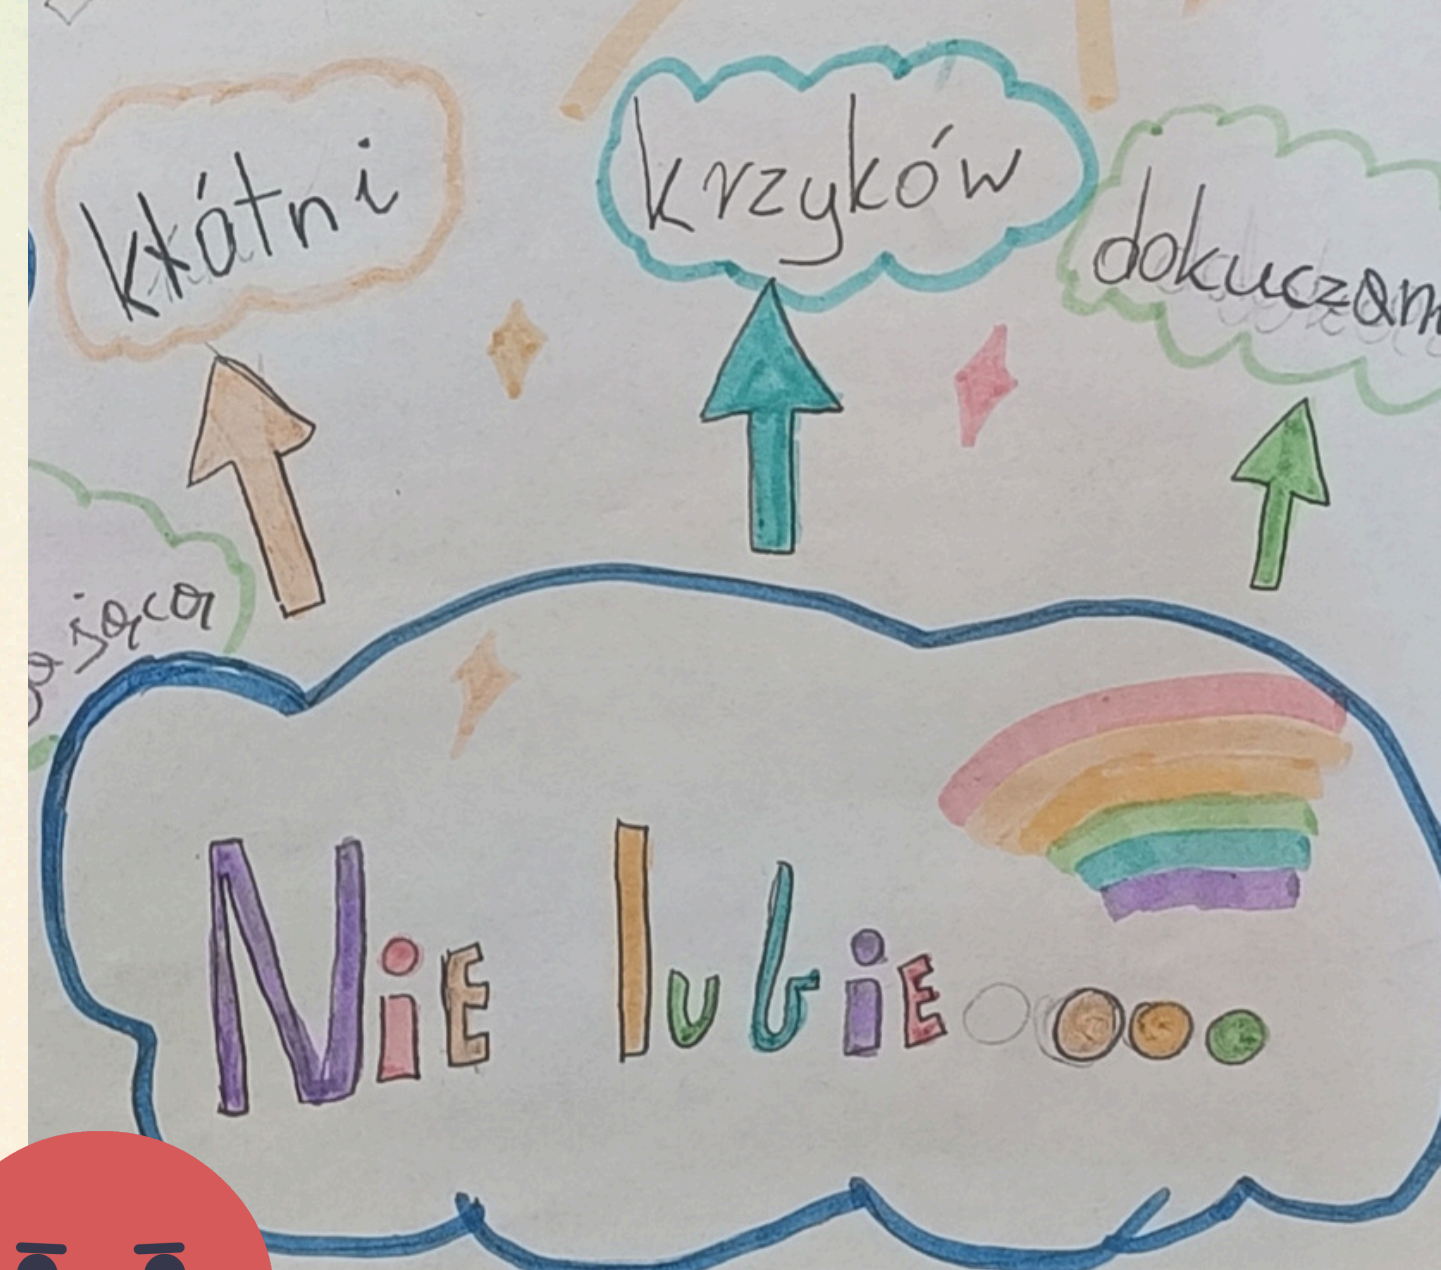 kłótni
krzyków
dokuczan
NiE lubiE...